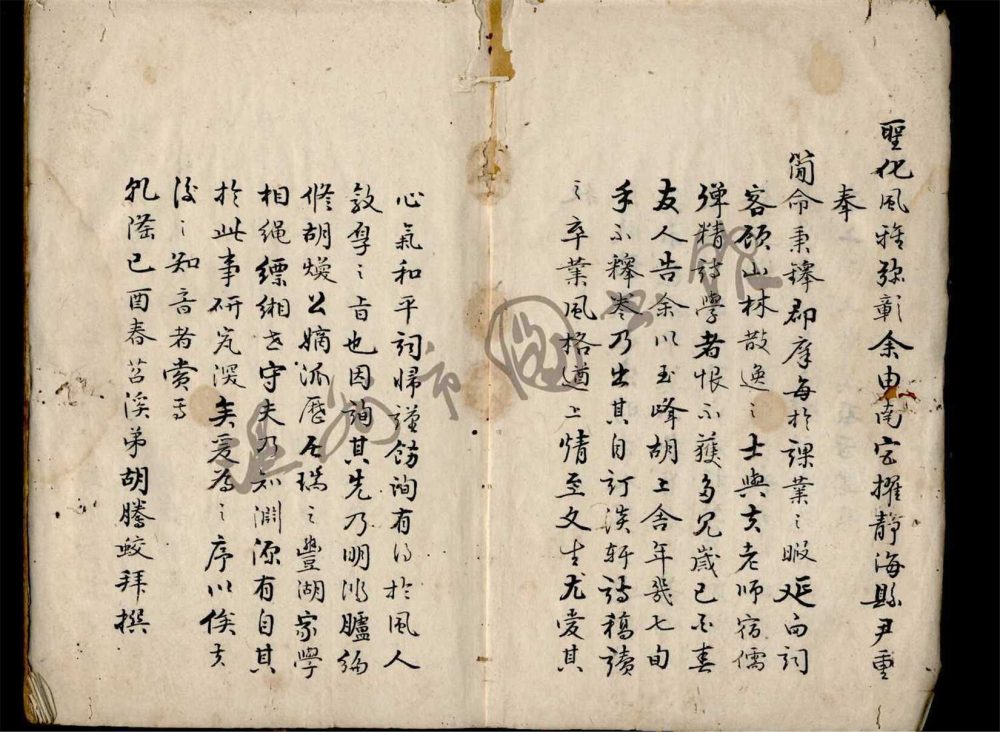 聖化風雅弥彰余由南宮擢靜海縣尹重
奉
簡命秉鐸郡庠每於課業之暇延向詞
客碩山林散逸之士與夫老師宿儒
殫精詩學者恨不獲多見歲己酉春
友人告余以玉峰胡上舍年幾七旬
手不釋卷乃出其自訂淡軒詩稿讀
之卒業風格遒上情至文生尤愛其
心氣和平詞歸謹飭詢有得於風人
敦厚之旨也因詢其先乃明鴻臚
修胡煖公嫡派歷居瑞之豐湖家學
相繩縹緗世守夫乃知淵源有自其
於此事研究深矣爰為之序以俟夫
後之知音者賞焉
乾隆己酉春苕溪弟胡騰蛟拜撰
溫州市圖書館